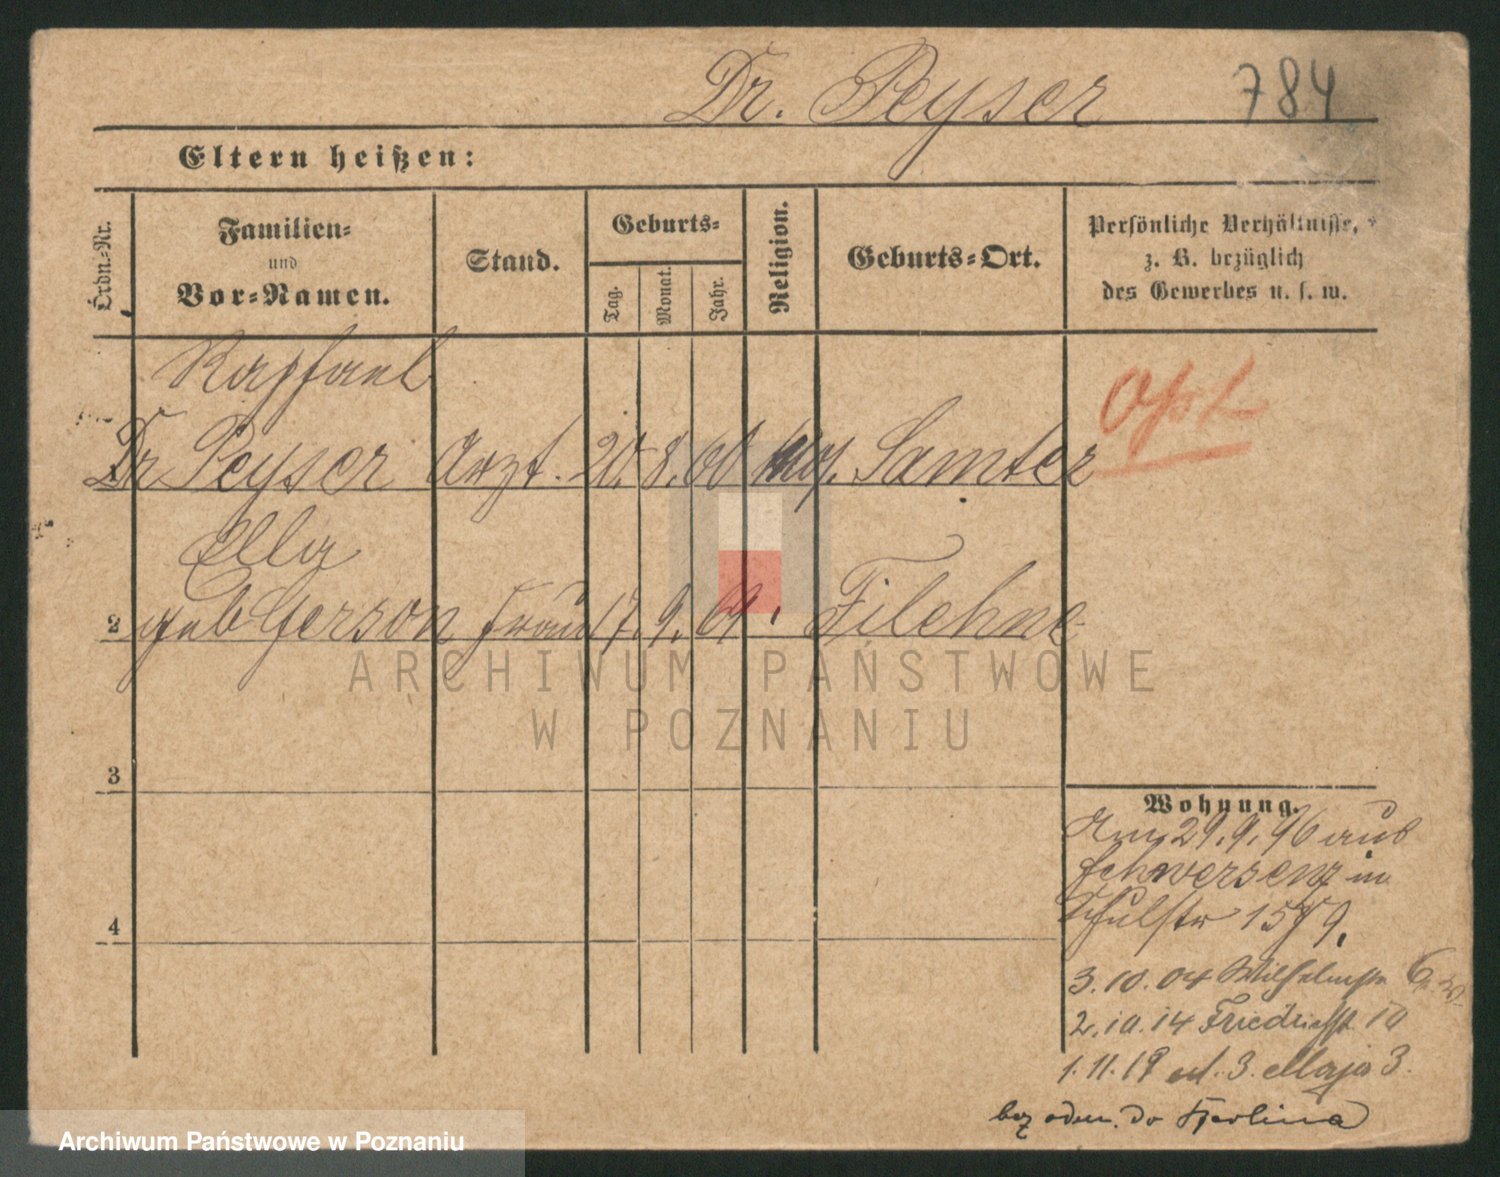 Dr. Peyser 784
Eltern heißen:
Ordn.-Nr.
Familien-
und
Vor-Namen.
Stand.
Geburts-
Tag.
Monat.
Jahr.
Religion.
Geburts-Ort.
Persönliche Verhältnisse,
z. B. bezüglich
des Gewerbes u. s. w.
Raphael
Dr Peyser Arzt. 20. 8. 60 mos. Samter
Ella
2 geb Gerson Frau 17. 9. 69. Filehne
ARCHIWUM PAŃSTWOWE
W POZNANIU
3
4
Wohnung.
Am 29. 9. 96 aus
Schwersenz in
Schulstr
3. 10. 04 Wilhelmstr
2. 10. 14 Friedrichst. 10
1. 11. 19 ul. 3. Maja 3.
bez odm. do Berlina
Archiwum Państwowe w Poznaniu